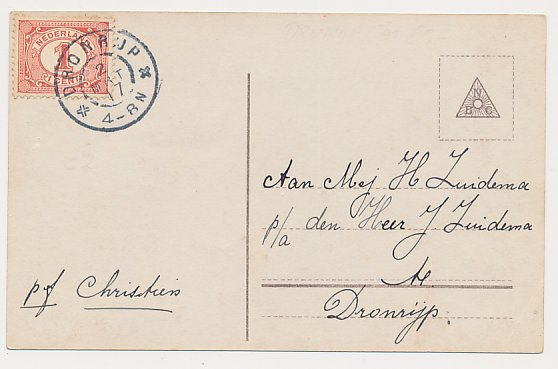 NEDERLAND
1
CENT
DRONRIJP
2
17
4-8N
N
B C
Aan Mej H Zuidema
p/a den Heer J Zuidema
te
Dronrijp.
pf Christien